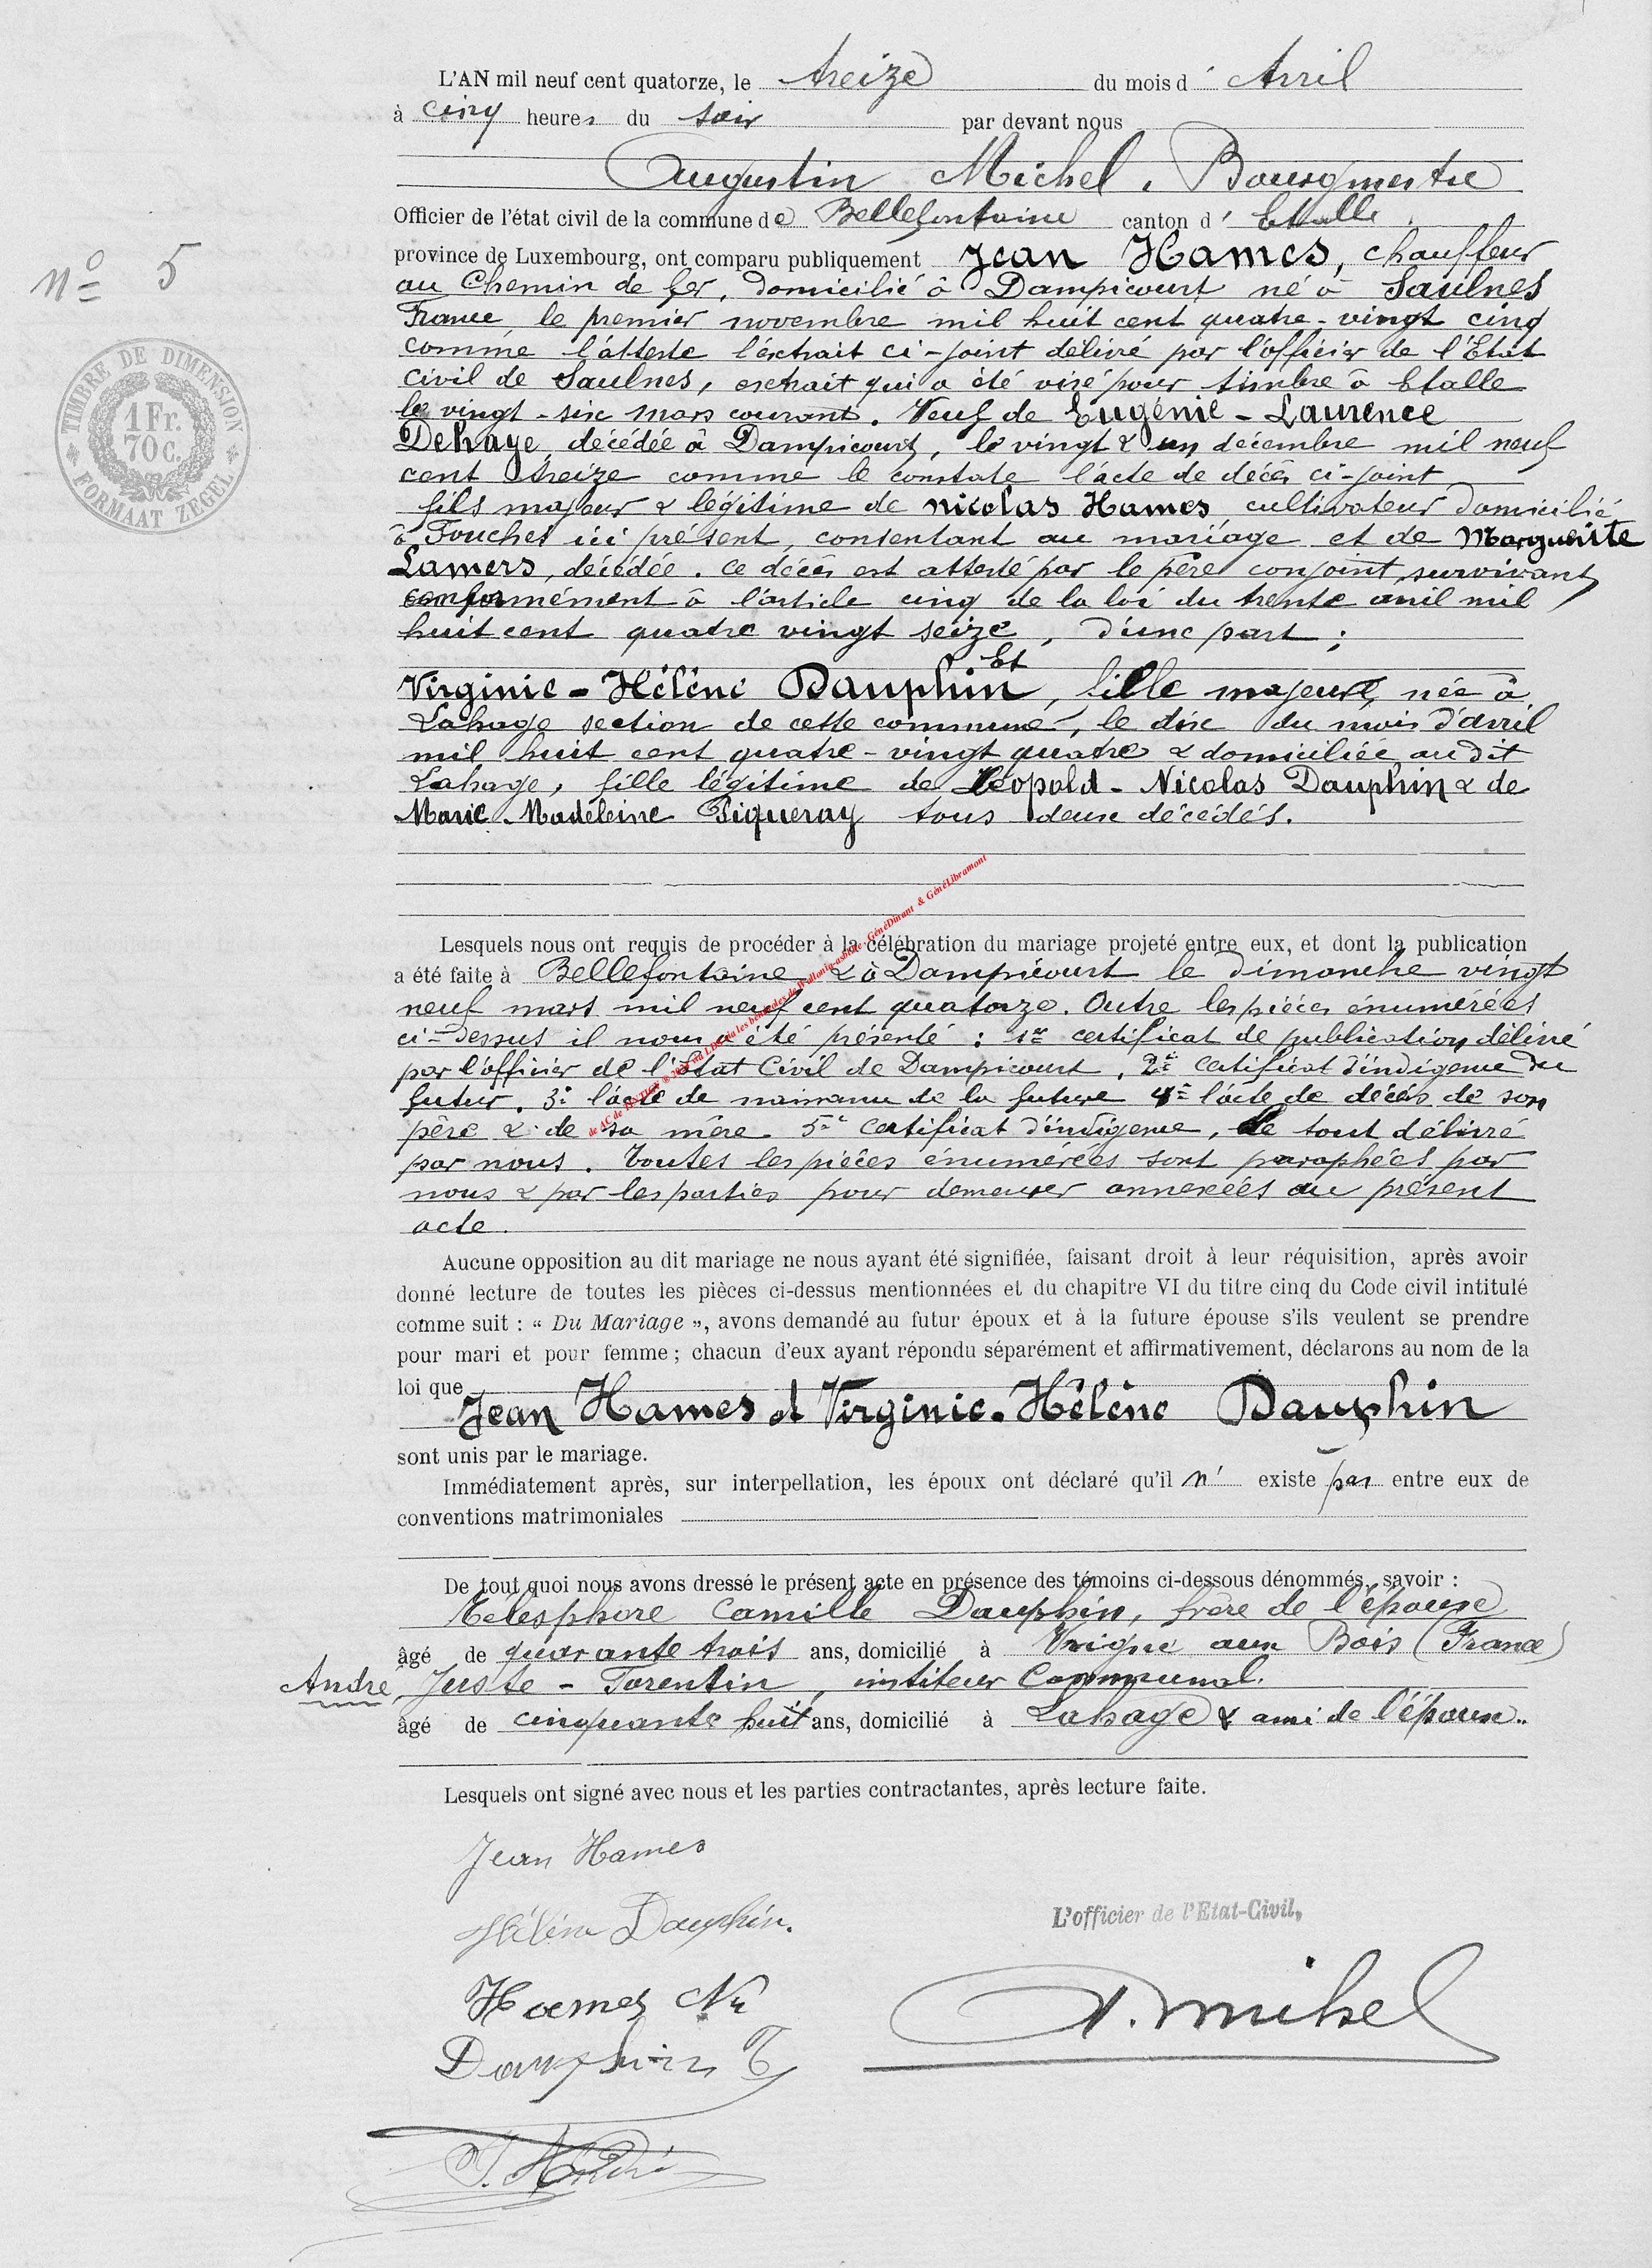 L'AN mil neuf cent quatorze, le treize du mois d' Avril
à cinq heures du soir par devant nous
Augustin Michel, Bourgmestre
Officier de l'état civil de la commune de Bellefontaine canton d' Etalle,
province de Luxembourg, ont comparu publiquement Jean Hames, chauffeur
N° 5
au Chemin de fer, domicilié à Dampicourt né à Saulnes
France, le premier novembre mil huit cent quatre-vingt cinq
comme l'atteste l'extrait ci-joint délivré par l'officier de l'Etat
civil de Saulnes, extrait qui a été visé pour timbre à Etalle
le vingt-six mars courant. Veuf de Eugénie-Laurence
Dehaye, décédée à Dampicourt, le vingt & un décembre mil neuf
cent treize comme le constate l'acte de décès ci-joint
TIMBRE DE DIMENSION
1 Fr. 70 c.
FORMAAT ZEGEL
fils majeur & légitime de Nicolas Hames, cultivateur domicilié
à Fouches ici présent, consentant au mariage et de Marguerite
Lamers, décédée. Ce décès est attesté par le père conjoint survivant
conformément à l'article cinq de la loi du trente avril mil
huit cent quatre vingt seize, d'une part;
Et
Virginie-Hélène Dauphin, fille majeure, née à
Lahage section de cette commune, le dix du mois d'avril
mil huit cent quatre-vingt quatre & domiciliée au dit
Lahage, fille légitime de Léopold-Nicolas Dauphin & de
Marie-Madeleine Piqueray tous deux décédés.
Lesquels nous ont requis de procéder à la célébration du mariage projeté entre eux, et dont la publication
a été faite à Bellefontaine & à Dampicourt le dimanche vingt
neuf mars mil neuf cent quatorze. Outre les pièces énumérées
ci-dessus il nous a été présenté : 1er certificat de publication délivré
par l'officier de l'Etat Civil de Dampicourt. 2e Certificat d'indigence du
futur. 3e l'acte de naissance de la future 4e l'acte de décès de son
père & de sa mère. 5e Certificat d'indigence, Le tout délivré
par nous. Toutes les pièces énumérées sont paraphées par
nous & par les parties pour demeurer annexées au présent
acte.
Aucune opposition au dit mariage ne nous ayant été signifiée, faisant droit à leur réquisition, après avoir
donné lecture de toutes les pièces ci-dessus mentionnées et du chapitre VI du titre cinq du Code civil intitulé
comme suit : « Du Mariage », avons demandé au futur époux et à la future épouse s'ils veulent se prendre
pour mari et pour femme ; chacun d'eux ayant répondu séparément et affirmativement, déclarons au nom de la
loi que Jean Hames et Virginie-Hélène Dauphin
sont unis par le mariage.
Immédiatement après, sur interpellation, les époux ont déclaré qu'il n' existe pas entre eux de
conventions matrimoniales
De tout quoi nous avons dressé le présent acte en présence des témoins ci-dessous dénommés, savoir :
Telesphore Camille Dauphin, frère de l'épouse
âgé de quarante trois ans, domicilié à Vrigne aux Bois (France)
André Juste-Torentin, instituteur Communal.
âgé de cinquante huit ans, domicilié à Lahage & ami de l'épouse..
Lesquels ont signé avec nous et les parties contractantes, après lecture faite.
Jean Hames
Hélène Dauphin.
L'officier de l'Etat-Civil,
Hames Nic
A. Michel
Dauphin T
J. André